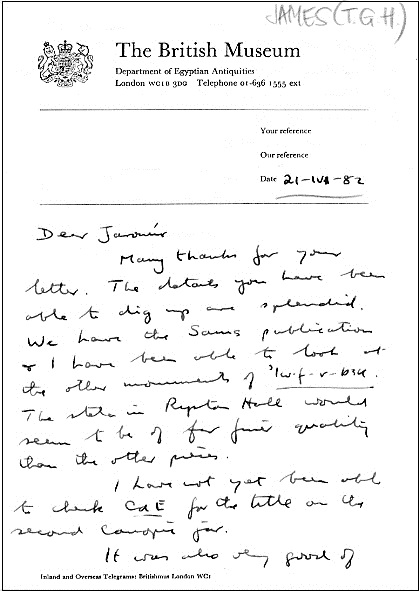 JAMES (T.G.H.)
The British Museum
Department of Egyptian Antiquities
London WC1B 3DG Telephone 01-636 1555 ext
Your reference
Our reference
Date 21-VII-82
Dear Jaromír
Many thanks for your
letter. The details you have been
able to dig up are splendid.
We have the Sams publication
& I have been able to look at
the other monuments of
The stela in Ripston Hall would
seem to be of far finer quality
than the other pieces.
I have not yet been able
to check CdE for the title on the
second Canopic jar.
It was also very good of
Inland and Overseas Telegrams: Britishmus London WC1